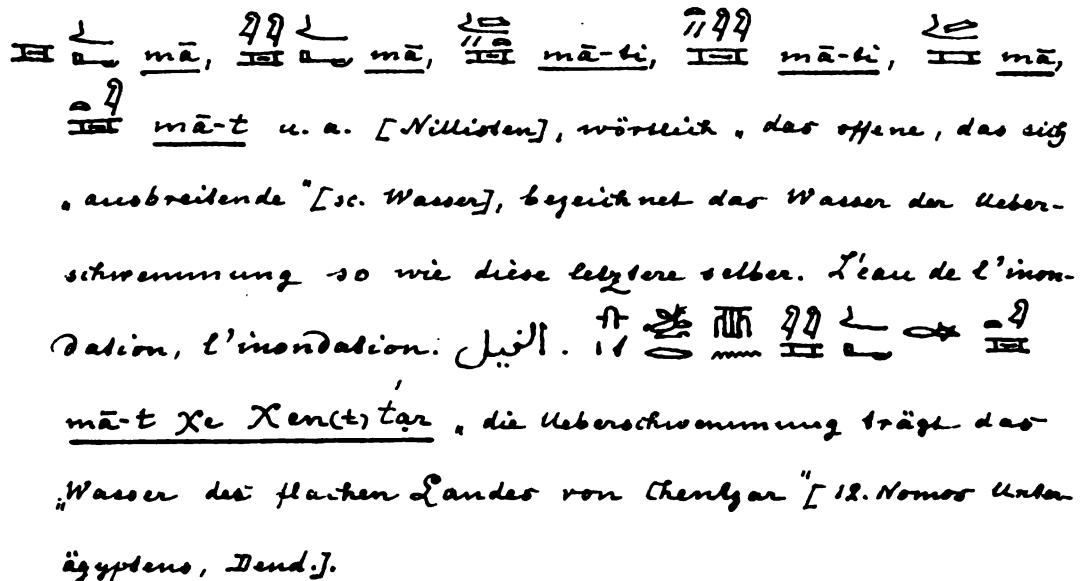 mā, mā, mā-ti, mā-ti, mā,
mā-t u. a. [Nillisten], wörtlich „das offene, das sich
„ausbreitende" [sc. Wasser], bezeichnet das Wasser der Ueber-
schwemmung so wie diese letztere selber. L'eau de l'inon-
dation, l'inondation. النيل.
mā-t χe χen(t) t́ar „die Ueberschwemmung trägt das
„Wasser des flachen Landes von Chentzar" [12. Nomos Unter-
ägyptens, Dend.].